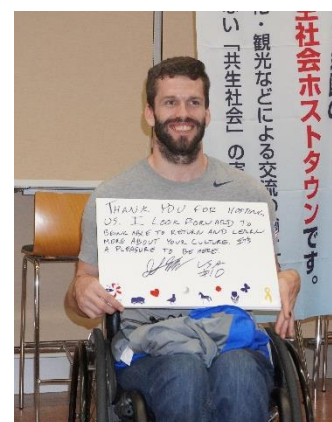 生社会ホストタウン
化・観光などによる交流の
ない「共生社会」の
THANK YOU FOR HOSTING
US. I LOOK FORWARD TO
BEING ABLE TO RETURN AND LEARN
MORE ABOUT YOUR CULTURE. IT'S
A PLEASURE TO BE HERE
USA
#10